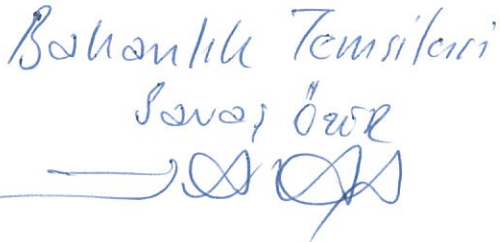 Bakanlık Temsilcisi
Savaş Özör